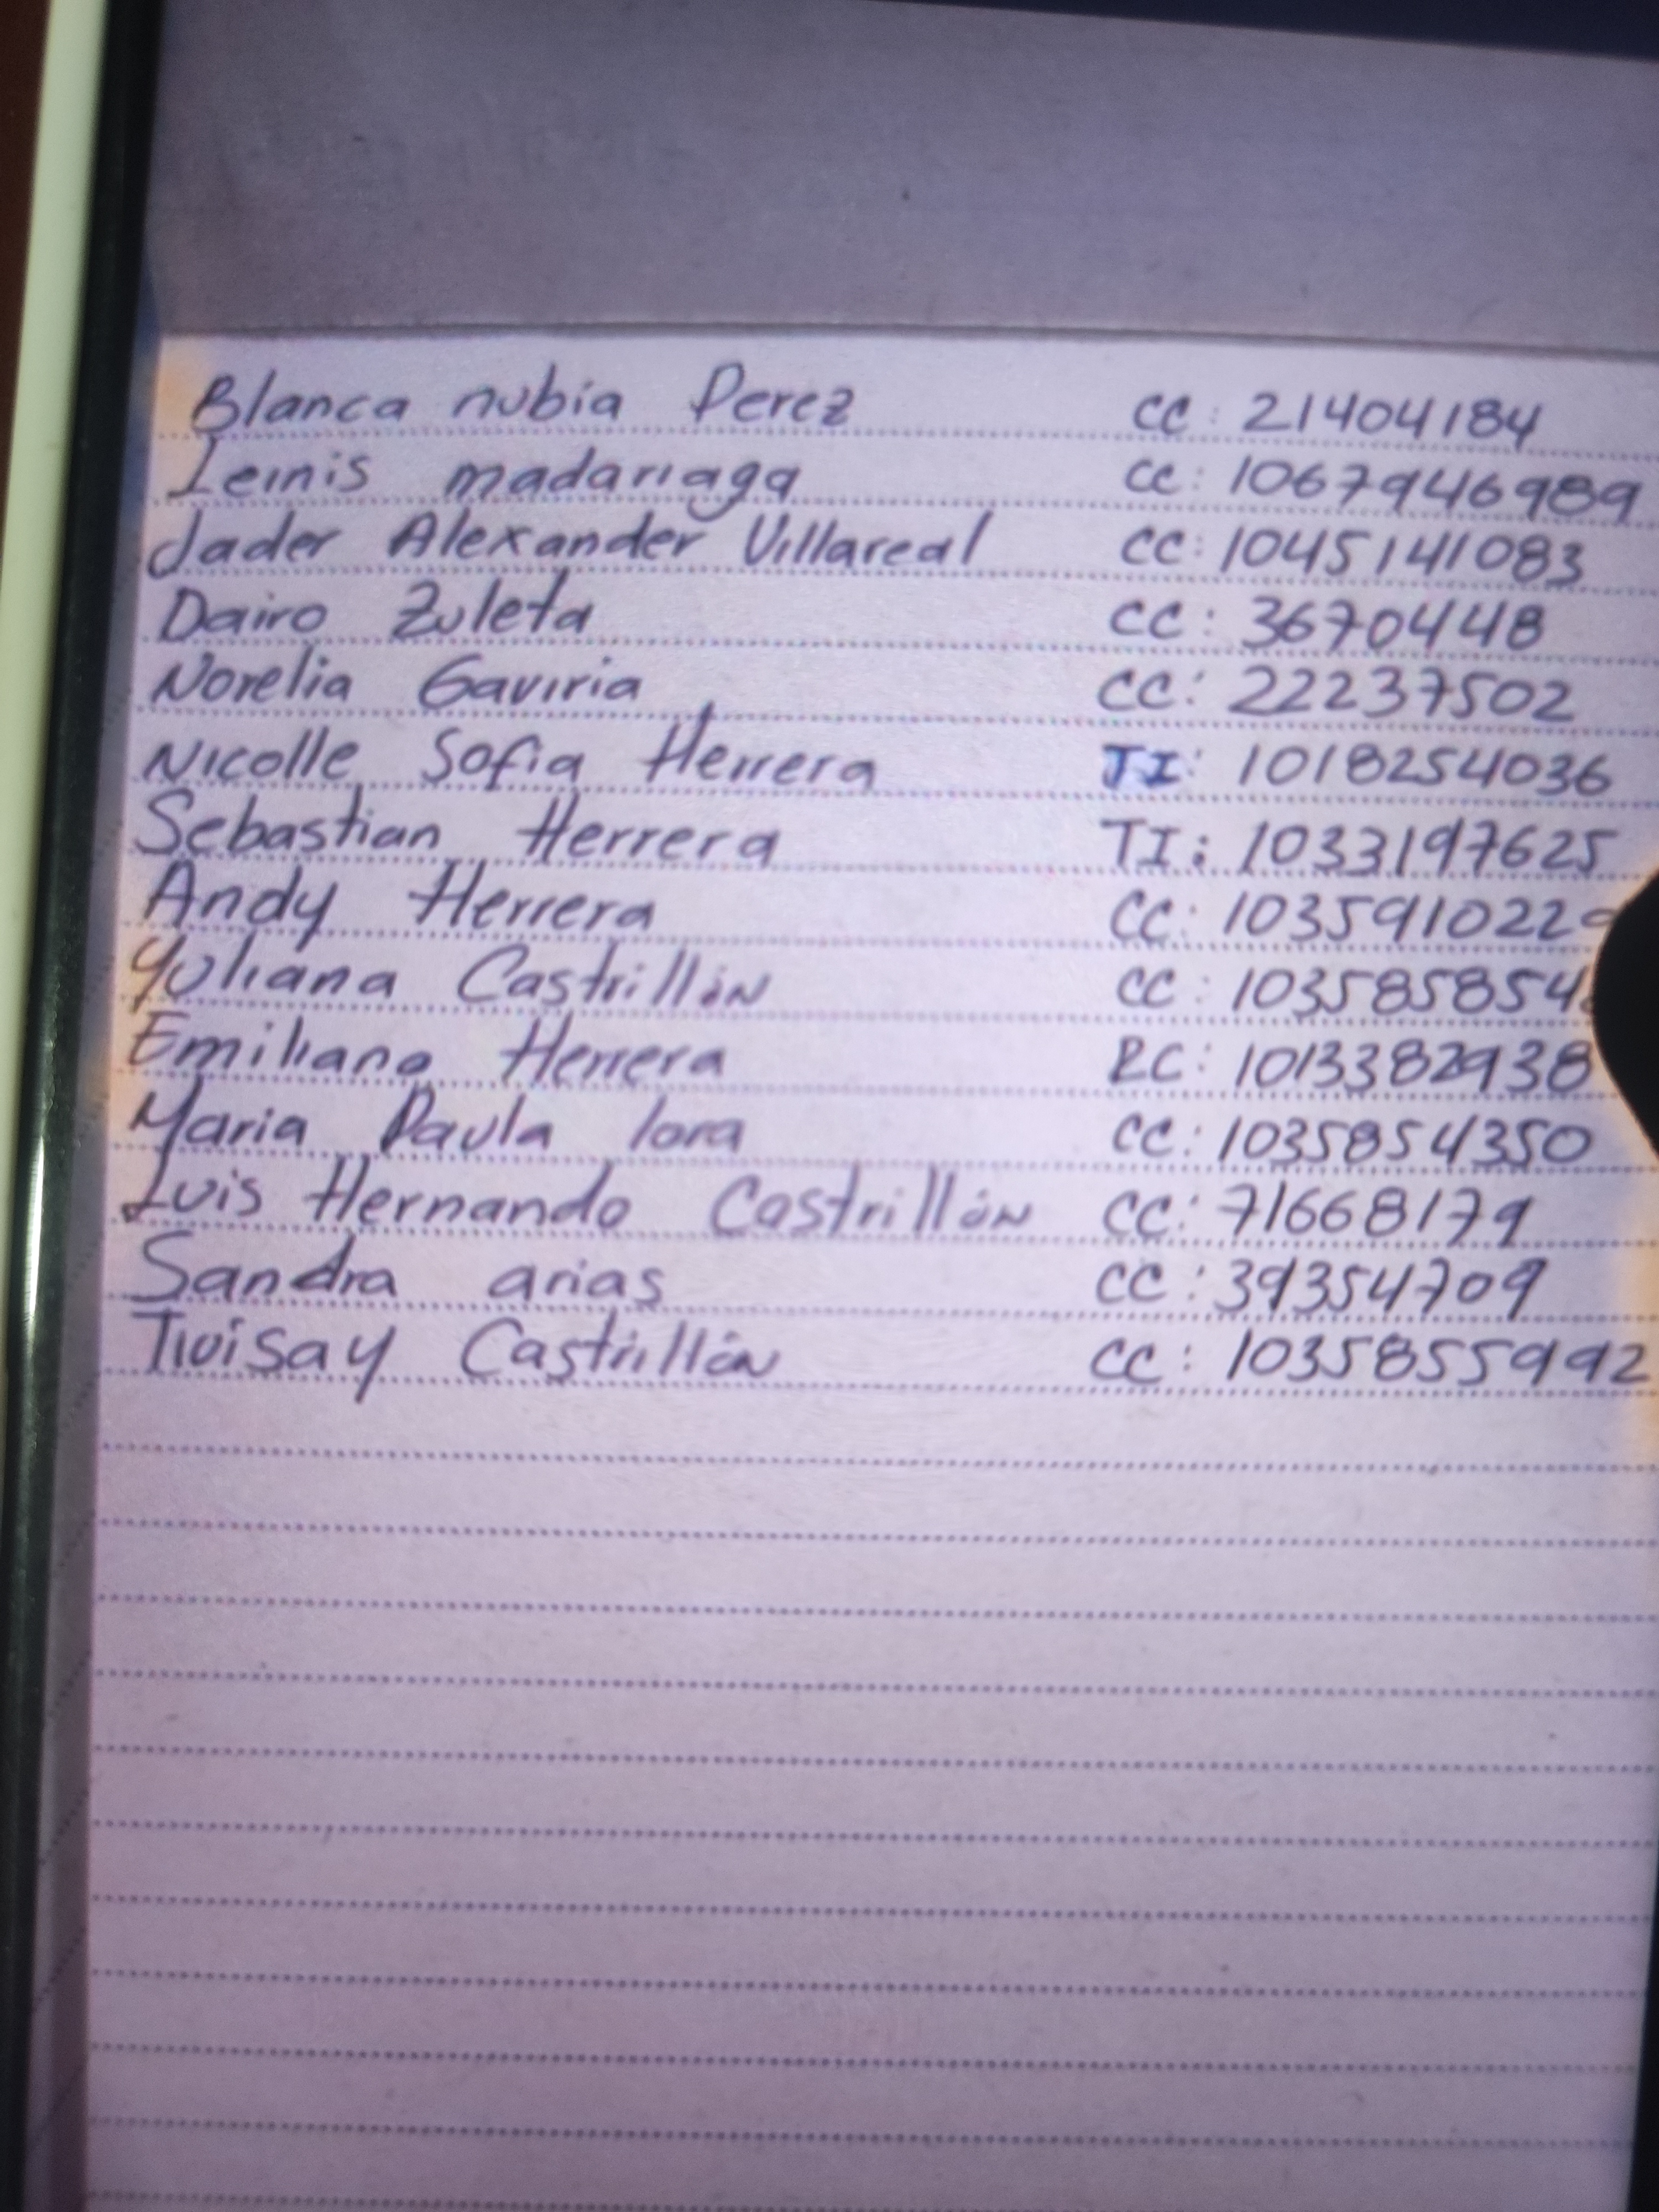 Blanca nubia Perez CC: 21404184
Leinis madariaga CC: 1067946989
Jader Alexander Villareal CC: 1045141083
Dairo Zuleta CC: 3670448
Norelia Gaviria CC: 22237502
Nicolle Sofia Herrera TI: 1018254036
Sebastian Herrera TI: 1033197625
Andy Herrera CC:
Yuliana Castrillón CC:
Emiliano Herrera RC: 1013382938
Maria Paula lora CC: 1035854350
Luis Hernando Castrillón CC: 71668179
Sandra arias CC: 39354709
Castrillón CC: 1035855992